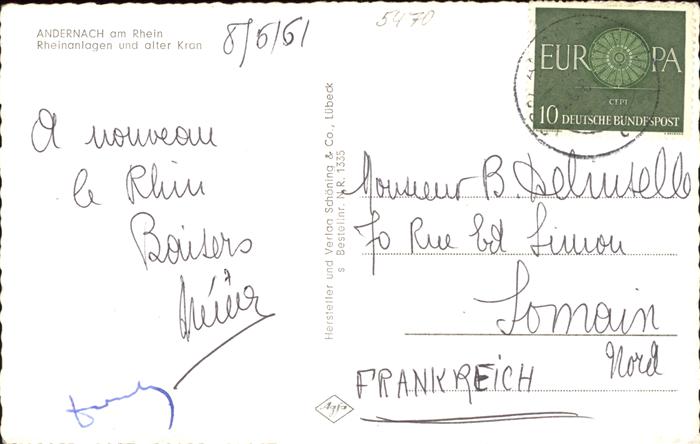 ANDERNACH am Rhein
Rheinanlagen und alter Kran
8/6/61
5470
EUROPA
CEPT
10 DEUTSCHE BUNDESPOST
A nouveau
le Rhin
Baisers
Hersteller und Verlag Schöning & Co., Lübeck
s Bestellnr. N.R. 1335
Monsieur B Delmselle
70 Rue Ed Simon
Somain
Nord
FRANKREICH
Agfa